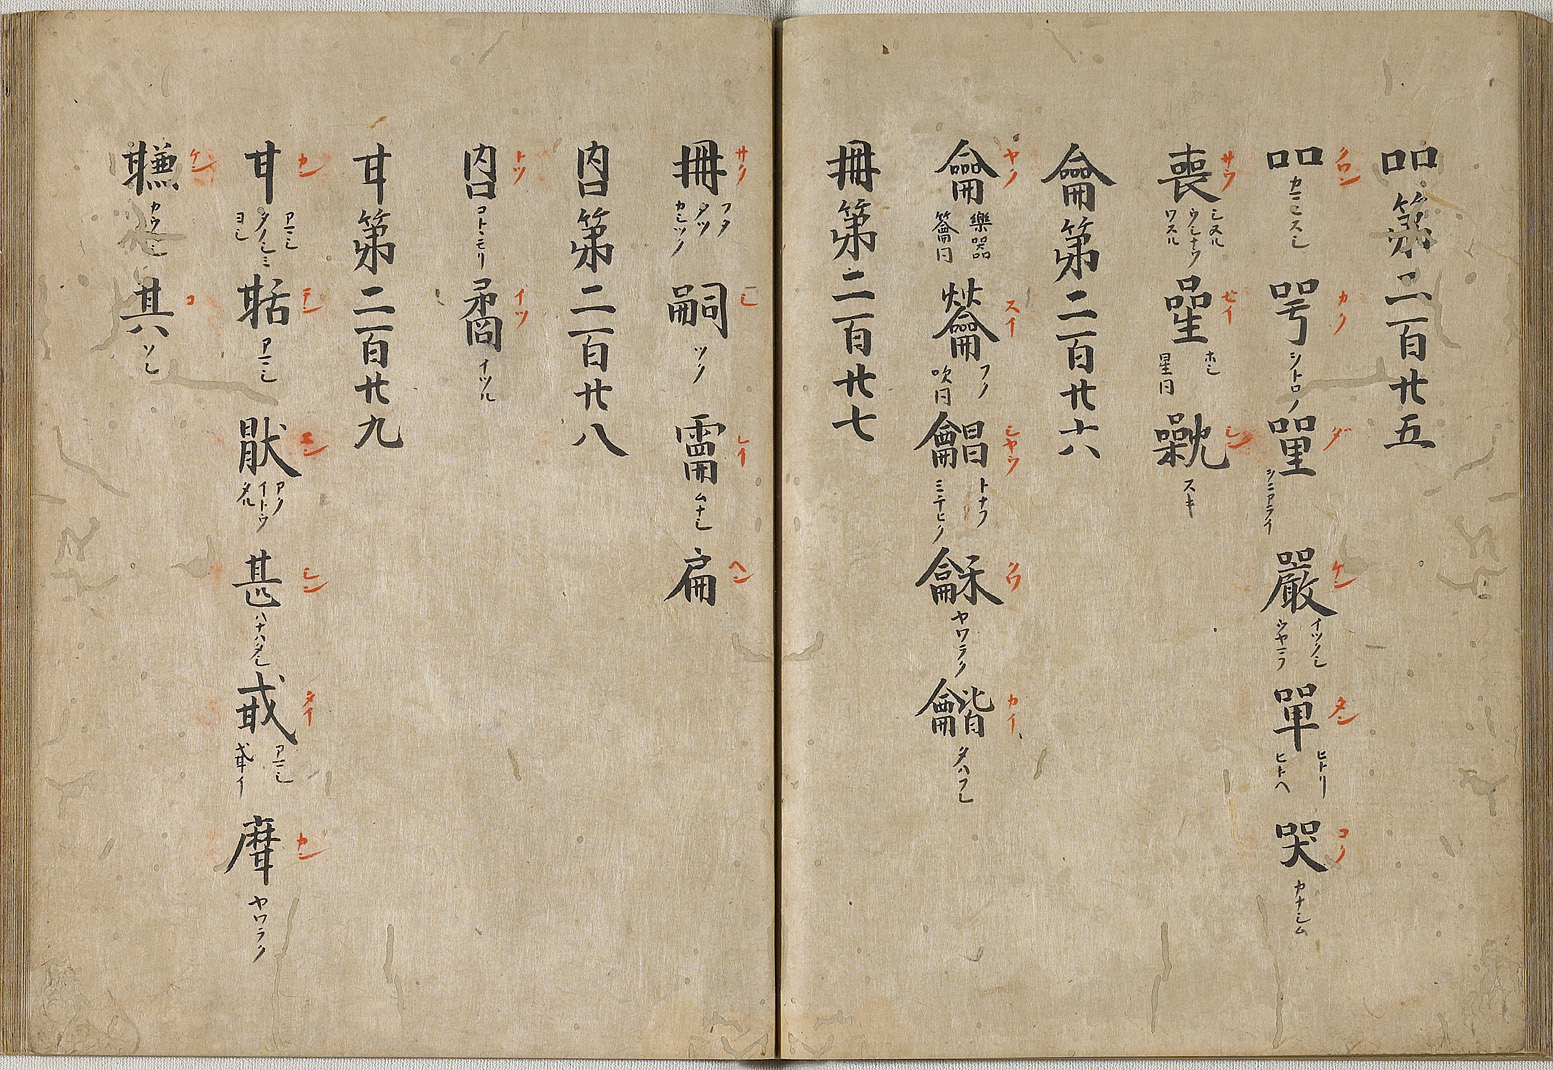 吅第二百廿五
吅 クワン カマヒスシ 咢 カク シトロノ 㗬 ダ 嚴 ケン イツクシ ウヤマフ 單 タン ヒトリ ヒトヘ 哭 コク カナシム
喪 サウ シヌル ウシナウ ワスル 𠻖 セイ ホシ 星同 シ スキ
龠第二百廿六
龠 ヤク 樂器 籥同 龡 スイ フク 吹同 シヤウ トナフ ミチヒク 龢 クワ ヤワラク 龤 カイ タハフレ
冊第二百廿七
冊 サク フタ タツ カンツク 嗣 シ ツク 霝 レイ ムナシ 扁 ヘン
㕯第二百廿八
㕯 トツ コトモリ 矞 イツ イツル
甘第二百廿九
甘 カン アマシ タノシミ ヨシ 甛 テン アマシ 猒 エン アク イトウ タル 甚 シン ハナハタシ タイ アマシ カン ヤワラク
ケン 其 コ ソレ